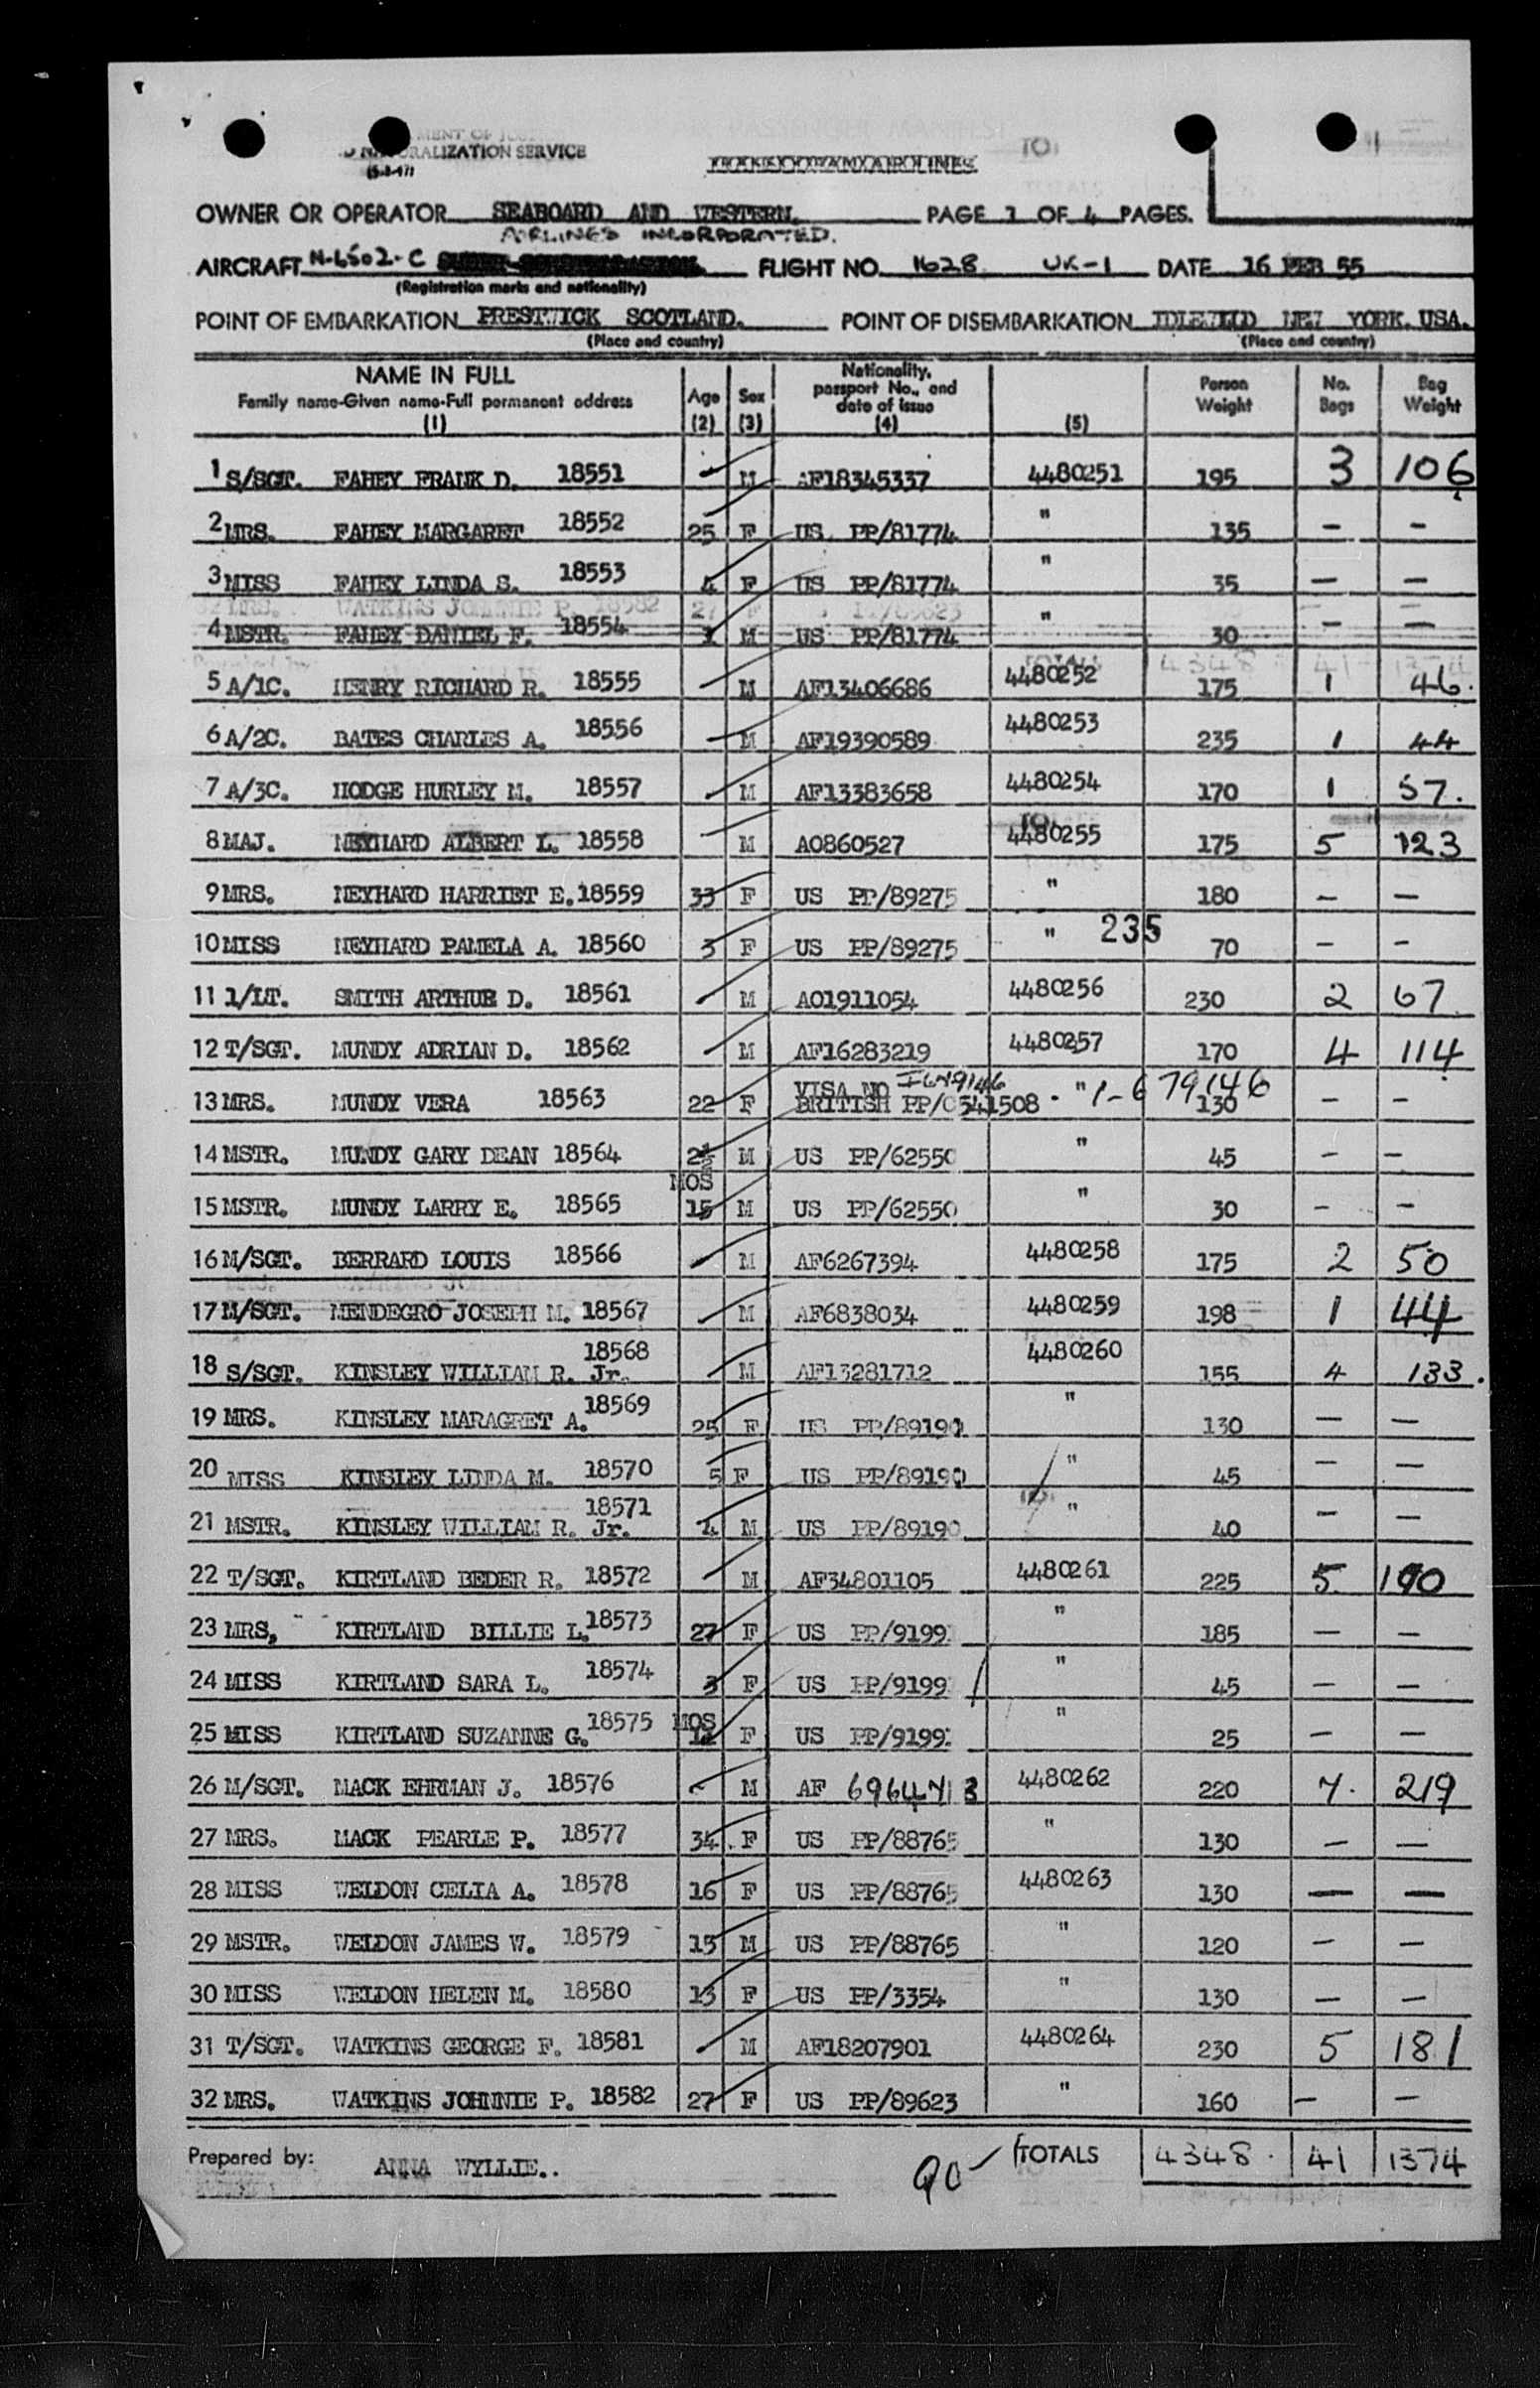 MENT OF
NATURALIZATION SERVICE
OWNER OR OPERATOR SEABOARD AND WESTERN PAGE 1 OF 4 PAGES.
AIRLINES INCORPORATED.
AIRCRAFT N-6502-C FLIGHT NO. 1628 UK-1 DATE 16 FEB 55
(Registration marks and nationality)
POINT OF EMBARKATION PRESTWICK SCOTLAND. POINT OF DISEMBARKATION IDLEWILD NEW YORK. USA.
(Place and country) (Place and country)
NAME IN FULL Age Sex Nationality, passport No., and date of issue Person Weight No. Bags Bag Weight
Family name-Given name-Full permanent address
(1) (2) (3) (4) (5)
1 S/SGT. FAHEY FRANK D. 18551 M AF18345337 4480251 195 3 106
2 MRS. FAHEY MARGARET 18552 25 F US PP/81774 " 135 - -
3 MISS FAHEY LINDA S. 18553 4 F US PP/81774 " 35 - -
4 MSTR. FAHEY DANIEL F. 18554 M US PP/81774 " 30 - -
5 A/1C. HENRY RICHARD R. 18555 M AF13406686 4480252 175 1 46.
6 A/2C. BATES CHARLES A. 18556 M AF19390589 4480253 235 1 44
7 A/3C. HODGE HURLEY M. 18557 M AF13383658 4480254 170 1 57.
8 MAJ. NEYHARD ALBERT L. 18558 M AO860527 4480255 175 5 123
9 MRS. NEYHARD HARRIET E. 18559 33 F US PP/89275 " 180 - -
10 MISS NEYHARD PAMELA A. 18560 3 F US PP/89275 " 235 70 - -
11 1/LT. SMITH ARTHUR D. 18561 M AO1911054 4480256 230 2 67
12 T/SGT. MUNDY ADRIAN D. 18562 M AF16283219 4480257 170 4 114
VISA NO I679146
13 MRS. MUNDY VERA 18563 22 F BRITISH PP/C541508 " 1-679146 130 - -
14 MSTR. MUNDY GARY DEAN 18564 M US PP/62550 " 45 - -
15 MSTR. MUNDY LARRY E. 18565 MOS 15 M US PP/62550 " 30 - -
16 M/SGT. BERRARD LOUIS 18566 M AF6267394 4480258 175 2 50
17 M/SGT. MENDEGRO JOSEPH M. 18567 M AF6838034 4480259 198 1 44
18 S/SGT. KINSLEY WILLIAM R. Jr. 18568 M AF13281712 4480260 155 4 133.
19 MRS. KINSLEY MARAGRET A. 18569 25 F US PP/89190 " 130 - -
20 MISS KINSLEY LINDA M. 18570 5 F US PP/89190 " 45 - -
21 MSTR. KINSLEY WILLIAM R. Jr. 18571 4 M US PP/89190 " 40 - -
22 T/SGT. KIRTLAND BEDER R. 18572 M AF34801105 4480261 225 5 190
23 MRS, KIRTLAND BILLIE L. 18573 27 F US PP/9199 " 185 - -
24 MISS KIRTLAND SARA L. 18574 3 F US PP/9199 " 45 - -
25 MISS KIRTLAND SUZANNE G. 18575 MOS F US PP/9199 " 25 - -
26 M/SGT. MACK EHRMAN J. 18576 M AF 6964713 4480262 220 7. 219
27 MRS. MACK PEARLE P. 18577 34 F US PP/88765 " 130 - -
28 MISS WELDON CELIA A. 18578 16 F US PP/88765 4480263 130 - -
29 MSTR. WELDON JAMES W. 18579 15 M US PP/88765 " 120 - -
30 MISS WELDON HELEN M. 18580 13 F US PP/3354 " 130 - -
31 T/SGT. WATKINS GEORGE F. 18581 M AF18207901 4480264 230 5 181
32 MRS. WATKINS JOHNNIE P. 18582 27 F US PP/89623 " 160 - -
Prepared by: ANNA WYLLIE.. TOTALS 4348 41 1374